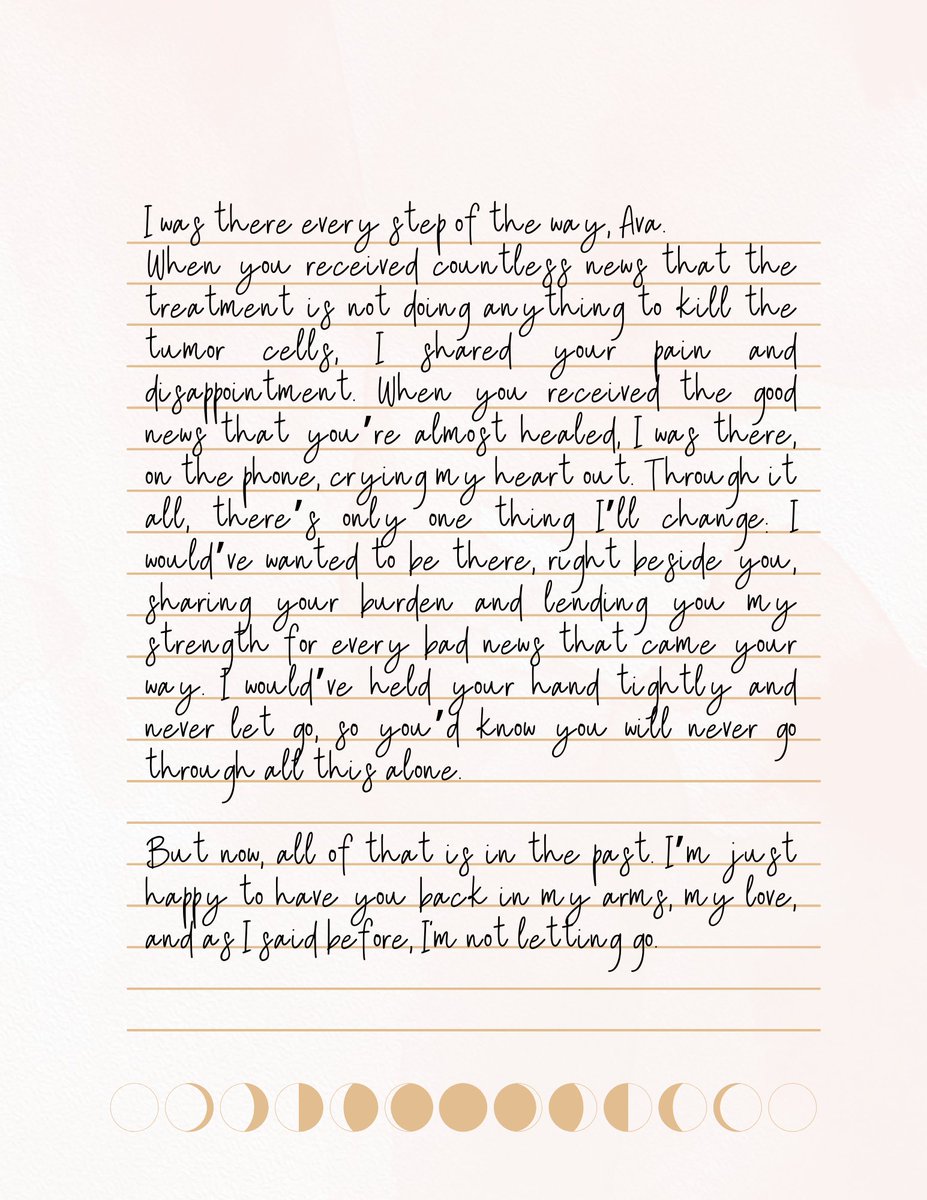 I was there every step of the way, Ava.
When you received countless news that the
treatment is not doing anything to kill the
tumor cells, I shared your pain and
disappointment. When you received the good
news that you're almost healed, I was there,
on the phone, crying my heart out. Through it
all, there's only one thing I'll change: I
would've wanted to be there, right beside you,
sharing your burden and lending you my
strength for every bad news that came your
way. I would've held your hand tightly and
never let go, so you'd know you will never go
through all this alone.
But now, all of that is in the past. I'm just
happy to have you back in my arms, my love,
and as I said before, I'm not letting go.